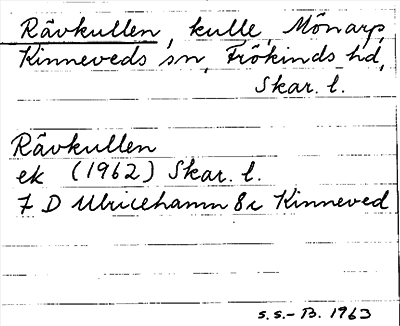 Rävkullen, kulle, Mönarp,
Kinneveds sn, Frökinds hd,
Skar. l.
Rävkullen
ek (1962) Skar. l.
7 D Ulricehamn 8c Kinneved
S.S.-B. 1963